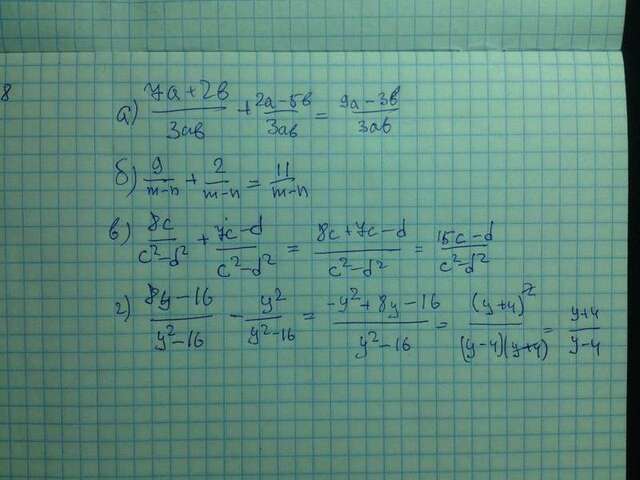 8
а) (7a+2в)/(3aв) + (2a-5в)/(3aв) = (9a-3в)/(3aв)
б) 9/(m-n) + 2/(m-n) = 11/(m-n)
в) 8c/(c²-d²) + (7c-d)/(c²-d²) = (8c+7c-d)/(c²-d²) = (15c-d)/(c²-d²)
г) (8y-16)/(y²-16) - y²/(y²-16) = (-y²+8y-16)/(y²-16) = (y+4)²/((y-4)(y+4)) = (y+4)/(y-4)